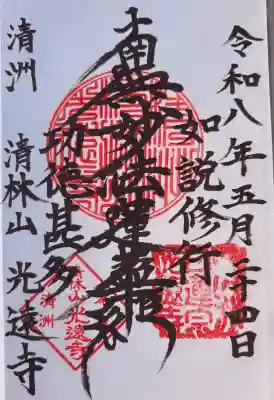 令和八年五月二十四日
如説修行
南無妙法蓮華経
功徳甚多
清洲 清林山 光遠寺
清林山
光遠寺
清洲